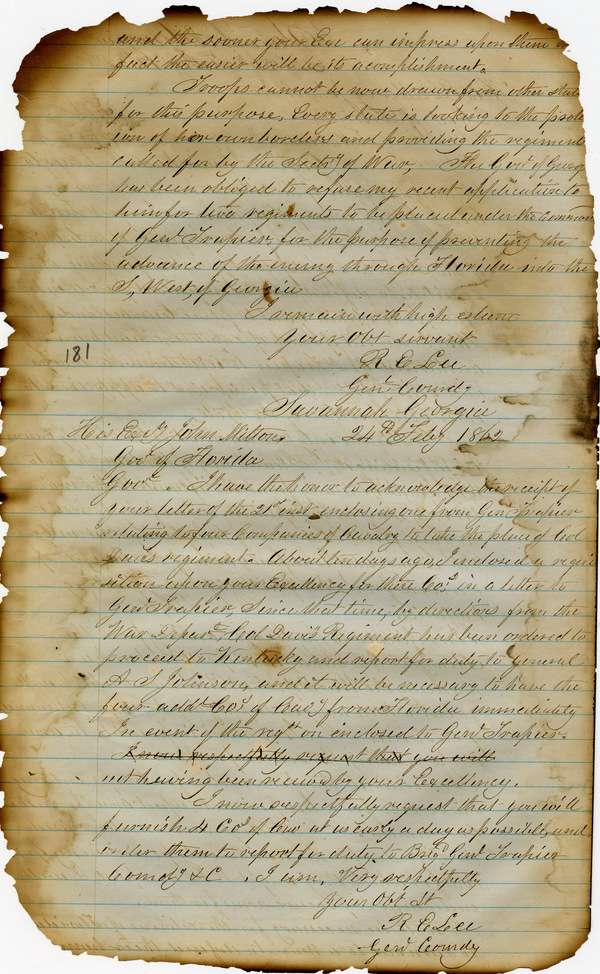 and the sooner your Exc can impress upon them
fact the easier will be its acomplishment.
Troops cannot be now drawn from other stat
for this purpose, Every state is looking to the prote
ion of her own borders and providing the regiment
called for by the Secty of War, The Govr of Georg
has been obliged to refuse my recent application to
him for two regiments to be placed under the comman
of Genl Trapier, for the purpose of preventing the
advance of the enemy through Florida into the
S, West, of Georgia
I remain with high esteem
Your Obt servant
R E Lee
Genl Comdg
181
Savannah Georgia
His Excy John Milton 24th Feby 1862
Gov of Florida
Govr " I have the honor to acknowledge the receipt of
your letter of the 21st inst enclosing one from Genl Trapier
relating to four Companies of Cavalry to take the place of Col
Davis regiment. About ten days ago, I inclosed a requi
sition upon your Excellency for three Cos in a letter to
Genl Trapier, Since that time, by directions from the
War Depart Col Davis Regiment has been ordered to
proceed to Kentucky and report for duty to general
A S Johnson, and it will be necessary to have the
four addl Cos of Cavy from Florida immediately
In event of the reqn on enclosed to Genl Trapier.
I now respectfully request that you will
not having been received by your Excellency.
I now respectfully request that you will
furnish 4 Cos of Cav at as early a day as possible, and
order them to report for duty to Brig Genl Trapier
Comdg &C. I am, Very respectfully
Your Obt St
R E Lee
Genl Comdg